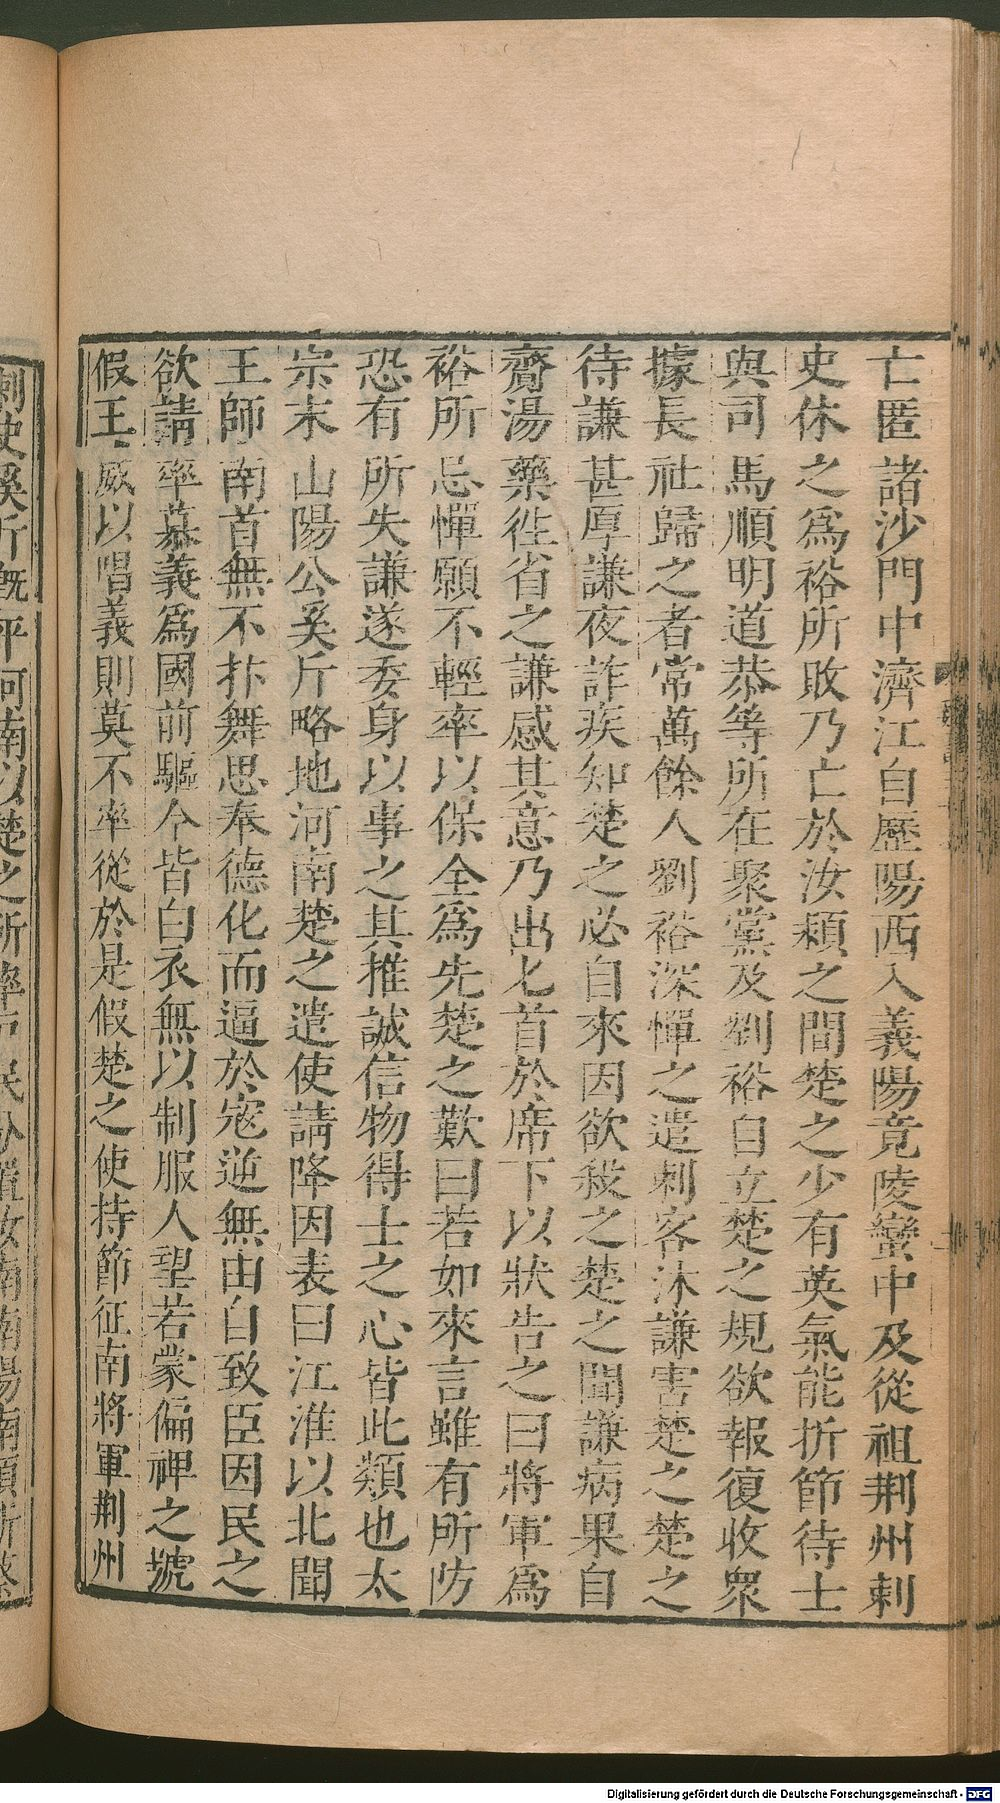 亡匿諸沙門中濟江自歷陽西入義陽竟陵蠻中及從祖荆州刺
史休之爲裕所敗乃亡於汝潁之間楚之少有英氣能折節待士
與司馬順明道恭等所在聚黨及劉裕自立楚之規欲報復收眾
據長社歸之者常萬餘人劉裕深憚之遣刺客沐謙害楚之楚之
待謙甚厚謙夜詐疾知楚之必自來因欲殺之楚之聞謙病果自
齎湯藥徃省之謙感其意乃出匕首於席下以狀告之曰將軍爲
裕所忌憚願不輕率以保全爲先楚之歎曰若如來言雖有所防
恐有所失謙遂委身以事之其推誠信物得士之心皆此類也太
宗末山陽公奚斤略地河南楚之遣使請降因表曰江淮以北聞
王師南首無不抃舞思奉德化而逼於寇逆無由自致臣因民之
欲請率慕義爲國前驅今皆白衣無以制服人望若蒙偏裨之號
假王威以唱義則莫不率從於是假楚之使持節征南將軍荆州
刺史奚斤旣平河南以楚之所率戶民分置汝南南陽南頓新蔡
Digitalisierung gefördert durch die Deutsche Forschungsgemeinschaft - DFG